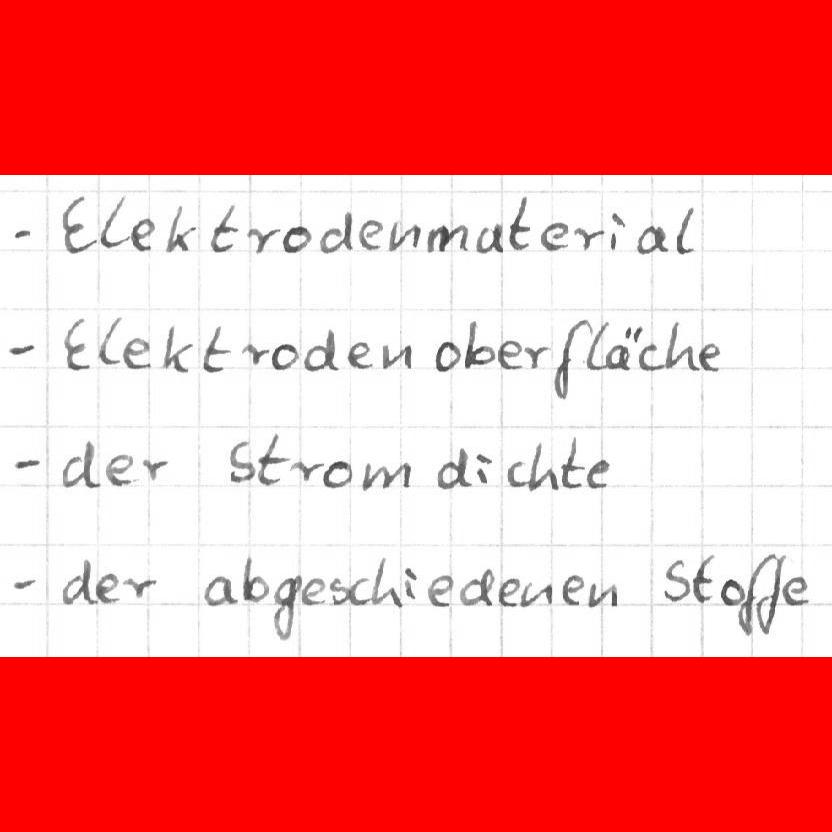 - Elektrodenmaterial
- Elektrodenoberfläche
- der Stromdichte
- der abgeschiedenen Stoffe